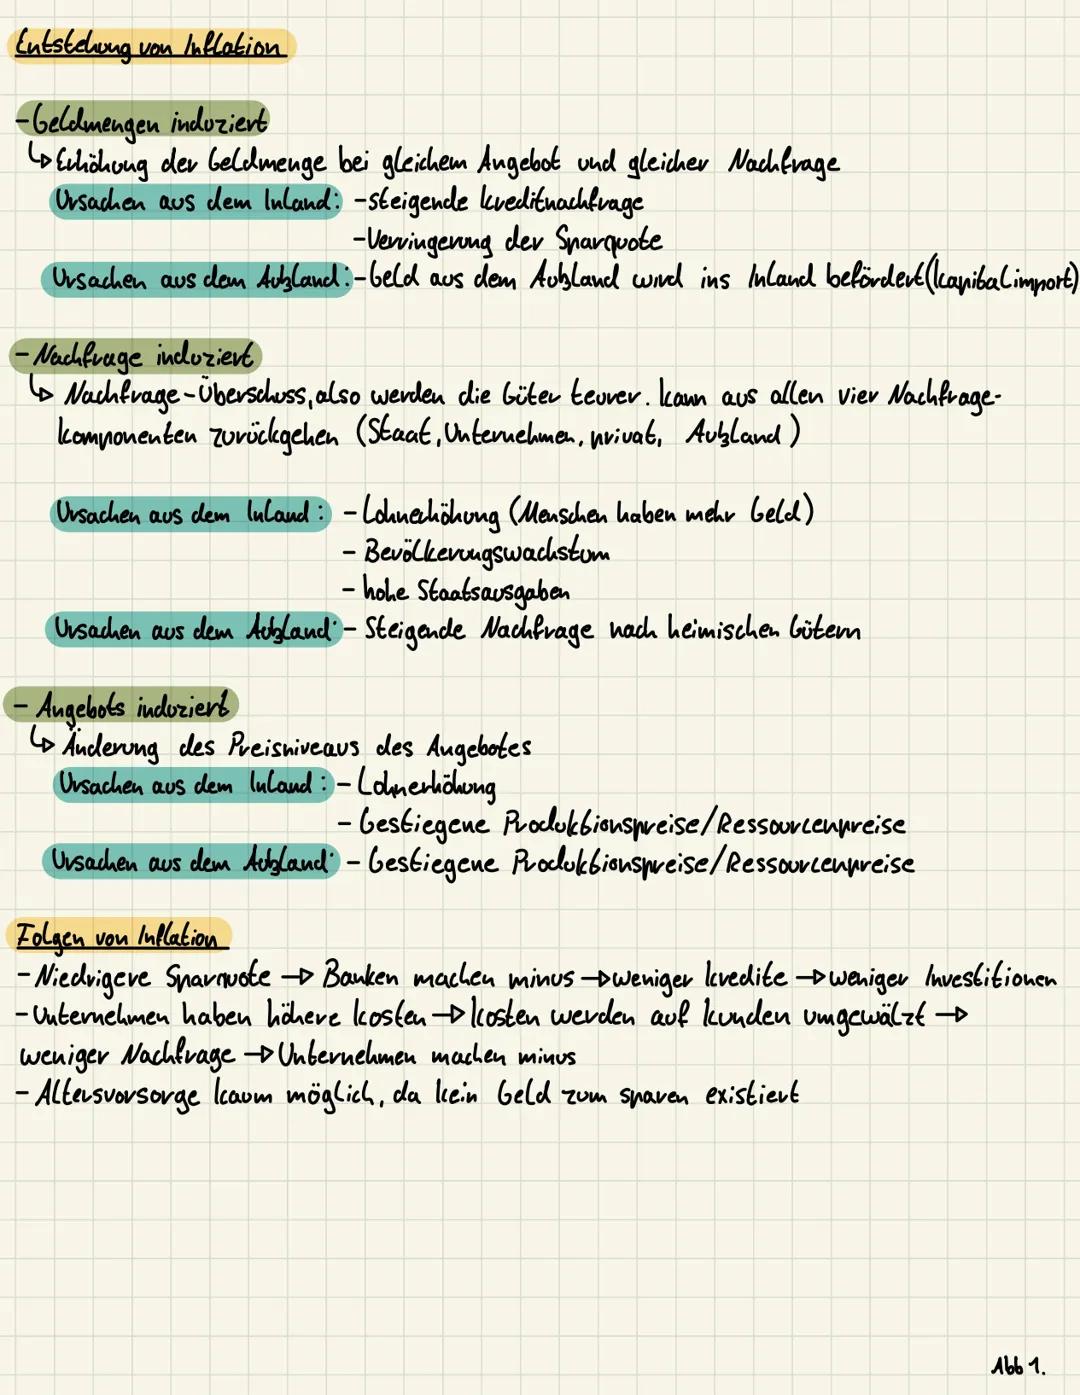 Entstehung von Inflation
- Geldmengen induziert
↳ Erhöhung der Geldmenge bei gleichem Angebot und gleicher Nachfrage
Ursachen aus dem Inland: - steigende Kreditnachfrage
- Verringerung der Sparquote
Ursachen aus dem Außland: - Geld aus dem Außland wird ins Inland befördert (Kapitalimport)
- Nachfrage induziert
↳ Nachfrage-Überschuss, also werden die Güter teurer. Kann aus allen vier Nachfrage-
komponenten zurückgehen (Staat, Unternehmen, privat, Außland)
Ursachen aus dem Inland: - Lohnerhöhung (Menschen haben mehr Geld)
- Bevölkerungswachstum
- hohe Staatsausgaben
Ursachen aus dem Außland: - Steigende Nachfrage nach heimischen Gütern
- Angebots induziert
↳ Änderung des Preisniveaus des Angebotes
Ursachen aus dem Inland: - Lohnerhöhung
- Gestiegene Produktionspreise/Ressourcenpreise
Ursachen aus dem Außland: - Gestiegene Produktionspreise/Ressourcenpreise
Folgen von Inflation
- Niedrigere Sparquote → Banken machen minus → weniger Kredite → weniger Investitionen
- Unternehmen haben höhere Kosten → Kosten werden auf Kunden umgewälzt →
weniger Nachfrage → Unternehmen machen minus
- Altersvorsorge kaum möglich, da kein Geld zum sparen existiert
Abb 1.